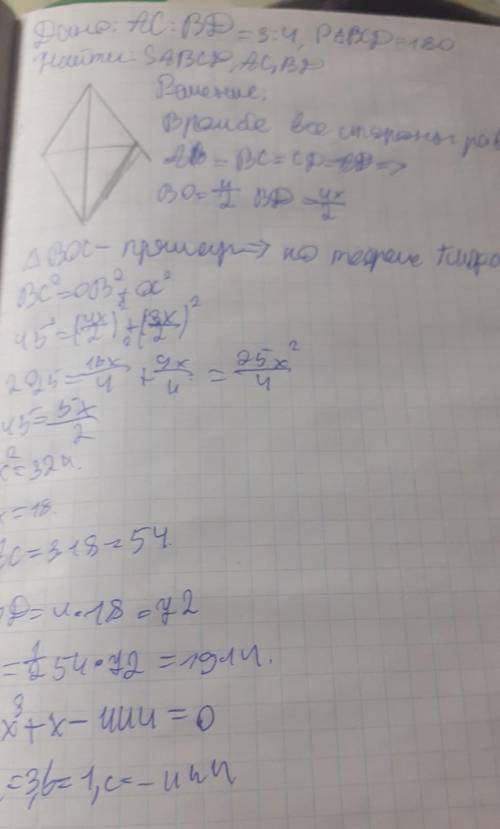 Дано: AC:BD=3:4, PABCD=180
Найти: SABCD, AC, BD
Решение.
В ромбе все стороны рав
AB = BC = CD = ⇒
BO = BD = 4x/2
△BOC – прямоуг ⇒ по теореме Пифа
BC²=OB²+OC²
45²=(4x/2)²+(3x/2)²
2025=16x/4+9x/4=25x²/4
45=5x/2
x²=324.
x=18
C=3·18=54
D=4·18=72
=1/2 54·72=1944.
x³+x-444=0
=3, b=1, c=-444